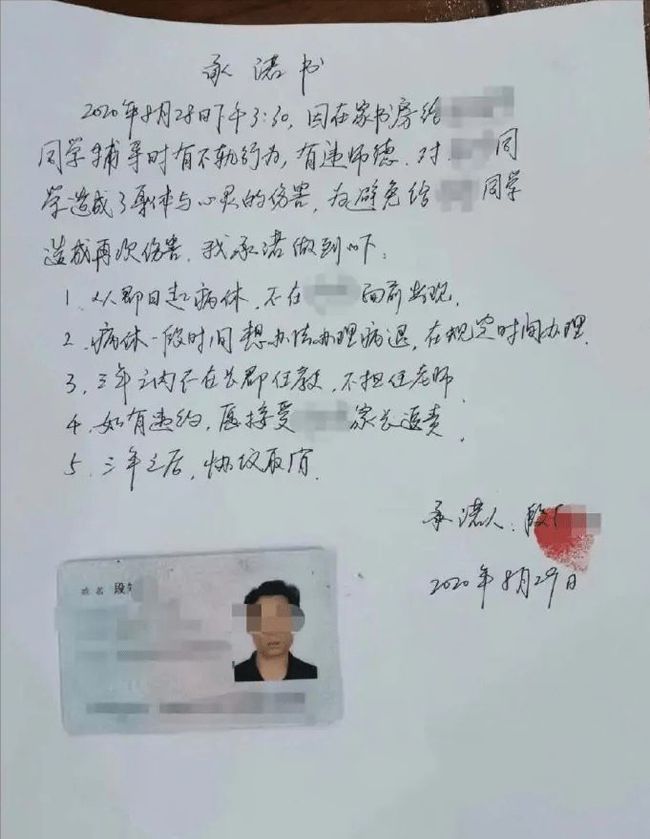 承诺书
2020年8月28日下午3:30,因在家书房给
同学辅导时有不轨行为,有违师德.对 同
学造成了身体与心灵的伤害,为避免给 同学
造成再次伤害.我承诺做到以下:
1、从即日起病休,不在 面前出现.
2、病休一段时间想办法办理病退,在规定时间办理.
3、三年之内不在长郡任教,不担任老师.
4、如有违约,愿接受 家长追责.
5、三年之后,协议取消.
承诺人:段
2020年8月29日
姓名 段